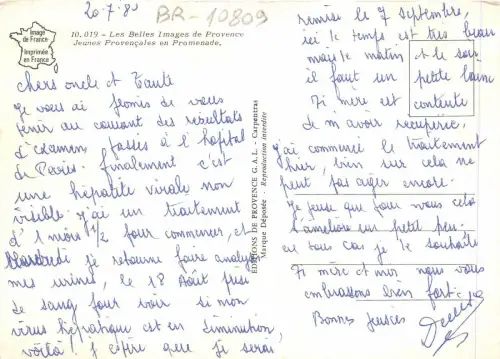 20-7-80
BR-10809
Image
de France
Imprimée
en France
10.019 - Les Belles Images de Provence
Jeunes Provençales en Promenade.
Chers oncle et Tante
Je vous ai promis de vous
tenir au courant des résultats
d'examens passés à l'hopital
de Paris. finalement c'est
une hépatite virale non
visible. j'ai un traitement
d'1 mois 1/2 pour commencer, et
je retourne faire analyser
mes urines, le 18 Août prise
de sang pour voir si mon
virus hépatique est en diminution,
voilà ! J'espère que je serai
EDITIONS DE PROVENCE G.A.L. - Carpentras
Marque Déposée - Reproduction interdite
remise le 7 septembre,
ici le temps est très beau
mais le matin et le soir
il faut un petite laine
Ti mère est contente
de m'avoir récupérée,
j'ai commencé le traitement
hier, bien sur cela ne
peut pas agir encore.
Je pense que pour vous cela
s'améliore un petit peu.
en tous cas je le souhaite
Ti mère et moi nous vous
embrassons bien fort.
Bonnes